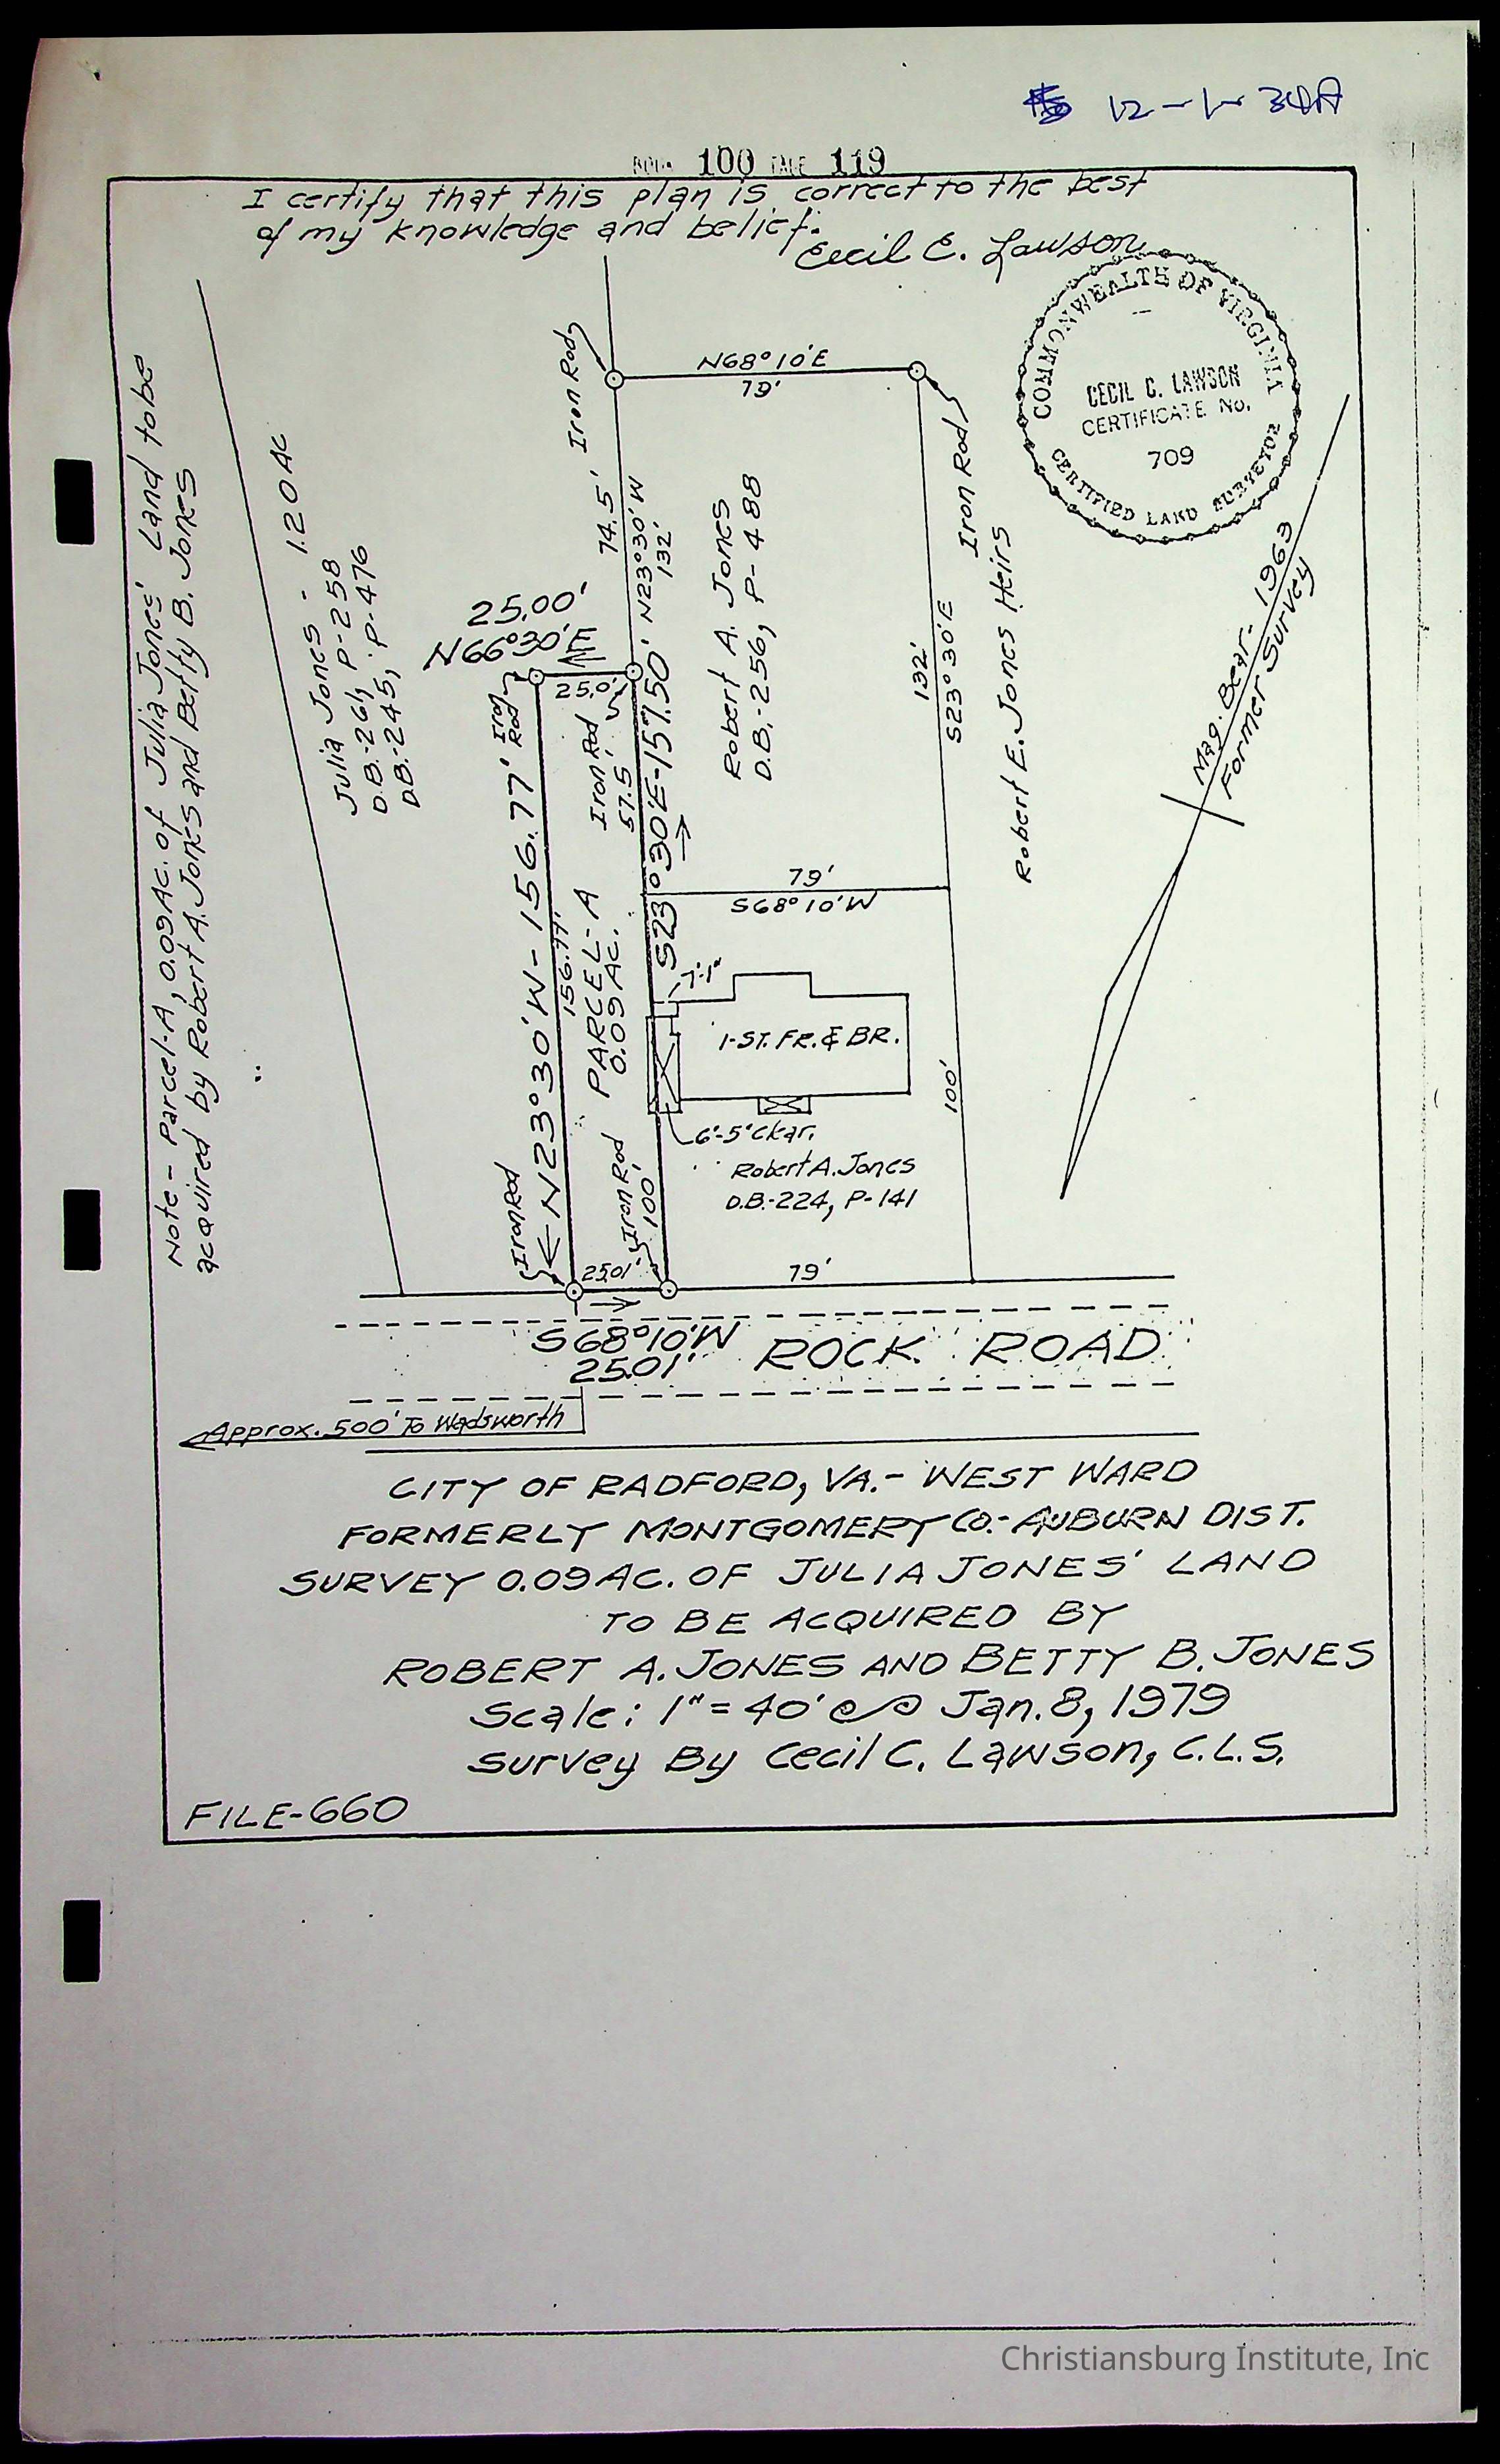 12-1-34A
BOOK 100 PAGE 119
I certify that this plan is correct to the best
of my knowledge and belief.
Cecil C. Lawson
COMMONWEALTH OF VIRGINIA
CECIL C. LAWSON
CERTIFICATE No.
709
CERTIFIED LAND SURVEYOR
Note- Parcel-A, 0.09 Ac. of Julia Jones' Land to be
acquired by Robert A. Jones and Betty B. Jones
Julia Jones - 1.20 Ac
D.B.-261, P-258
D.B.-245, P-476
Iron Rod
N68°10'E
79'
Iron Rod
74.5'
N23°30'W
132'
Robert A. Jones
D.B.-256, P-488
132'
S23°30'E
Robert E. Jones Heirs
Mag. Bear.- 1963
Former Survey
25.00'
N66°30'E
25.0'
Iron
Rod
Iron Rod
57.5'
S23°30'E-157.50'
N23°30'W-156.77'
156.77'
PARCEL-A
0.09 AC.
79'
S68°10'W
7'-1"
1-ST. FR. & BR.
6'-5" Clear.
100'
Robert A. Jones
D.B.-224, P-141
Iron Rod
Iron Rod
100'
25.01'
79'
S68°10'W
25.01'
ROCK ROAD
Approx. 500' To Wadsworth
CITY OF RADFORD, VA.- WEST WARD
FORMERLY MONTGOMERY CO.-AUBURN DIST.
SURVEY 0.09 AC. OF JULIA JONES' LAND
TO BE ACQUIRED BY
ROBERT A. JONES AND BETTY B. JONES
Scale: 1"=40' Jan. 8, 1979
Survey By Cecil C. Lawson, C.L.S.
FILE-660
Christiansburg Institute, Inc